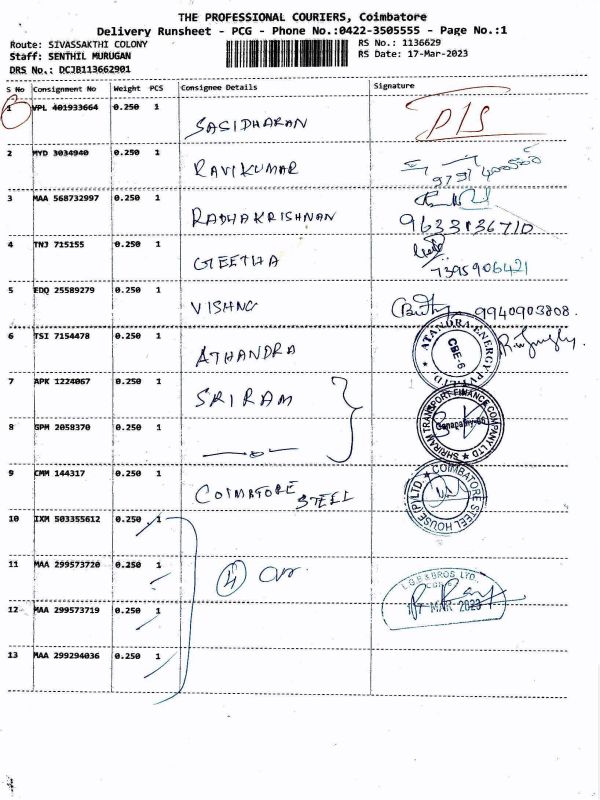 THE PROFESSIONAL COURIERS, Coimbatore
Delivery Runsheet - PCG - Phone No.:0422-3505555 - Page No.:1
Route: SIVASSAKTHI COLONY
RS No.: 1136629
Staff: SENTHIL MURUGAN
RS Date: 17-Mar-2023
DRS No.: DCJB113662901
S No Consignment No Weight PCS Consignee Details Signature
1 VPL 401933664 0.250 1 SASIDHARAN
2 MYD 3034940 0.250 1 RAVIKUMAR
3 MAA 568732997 0.250 1 RADHAKRISHNAN
9633836710
4 TNJ 715155 0.250 1 GEETHA
7395906421
5 EDQ 25589279 0.250 1 VISHNU 9940903808.
6 TSI 7154478 0.250 1 ATHANDRA ATANDRA ENERGY PVT LTD CBE-6
7 APK 1224067 0.250 1 SRIRAM
8 GPM 2058370 0.250 1 SHRIRAM TRANSPORT FINANCE COMPANY LTD
9 CMM 144317 0.250 1 COIMBATORE STEEL COIMBATORE STEEL HOUSE (P) LTD.
10 IXM 503355612 0.250 1
11 MAA 299573720 0.250 1 4
L.G.B & BROS LTD.
12 MAA 299573719 0.250 1 17 MAR 2023
13 MAA 299294036 0.250 1